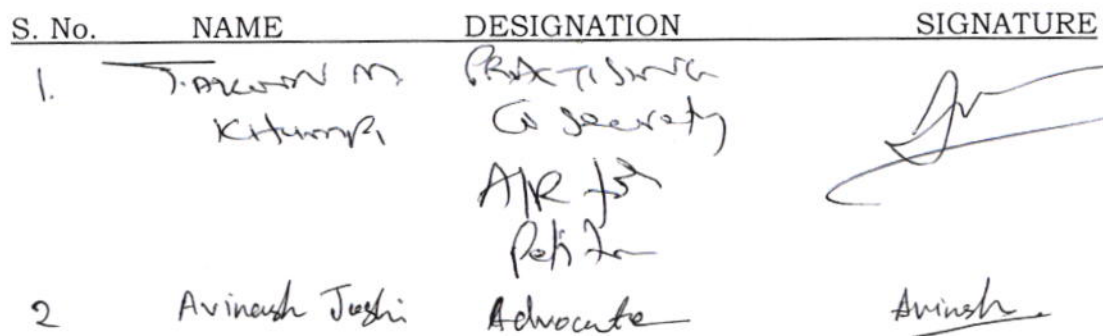 S. No. NAME DESIGNATION SIGNATURE
1. M. PRACTISING
Co Secretary
A/R for
2 Avinash Joshi Advocate Avinash